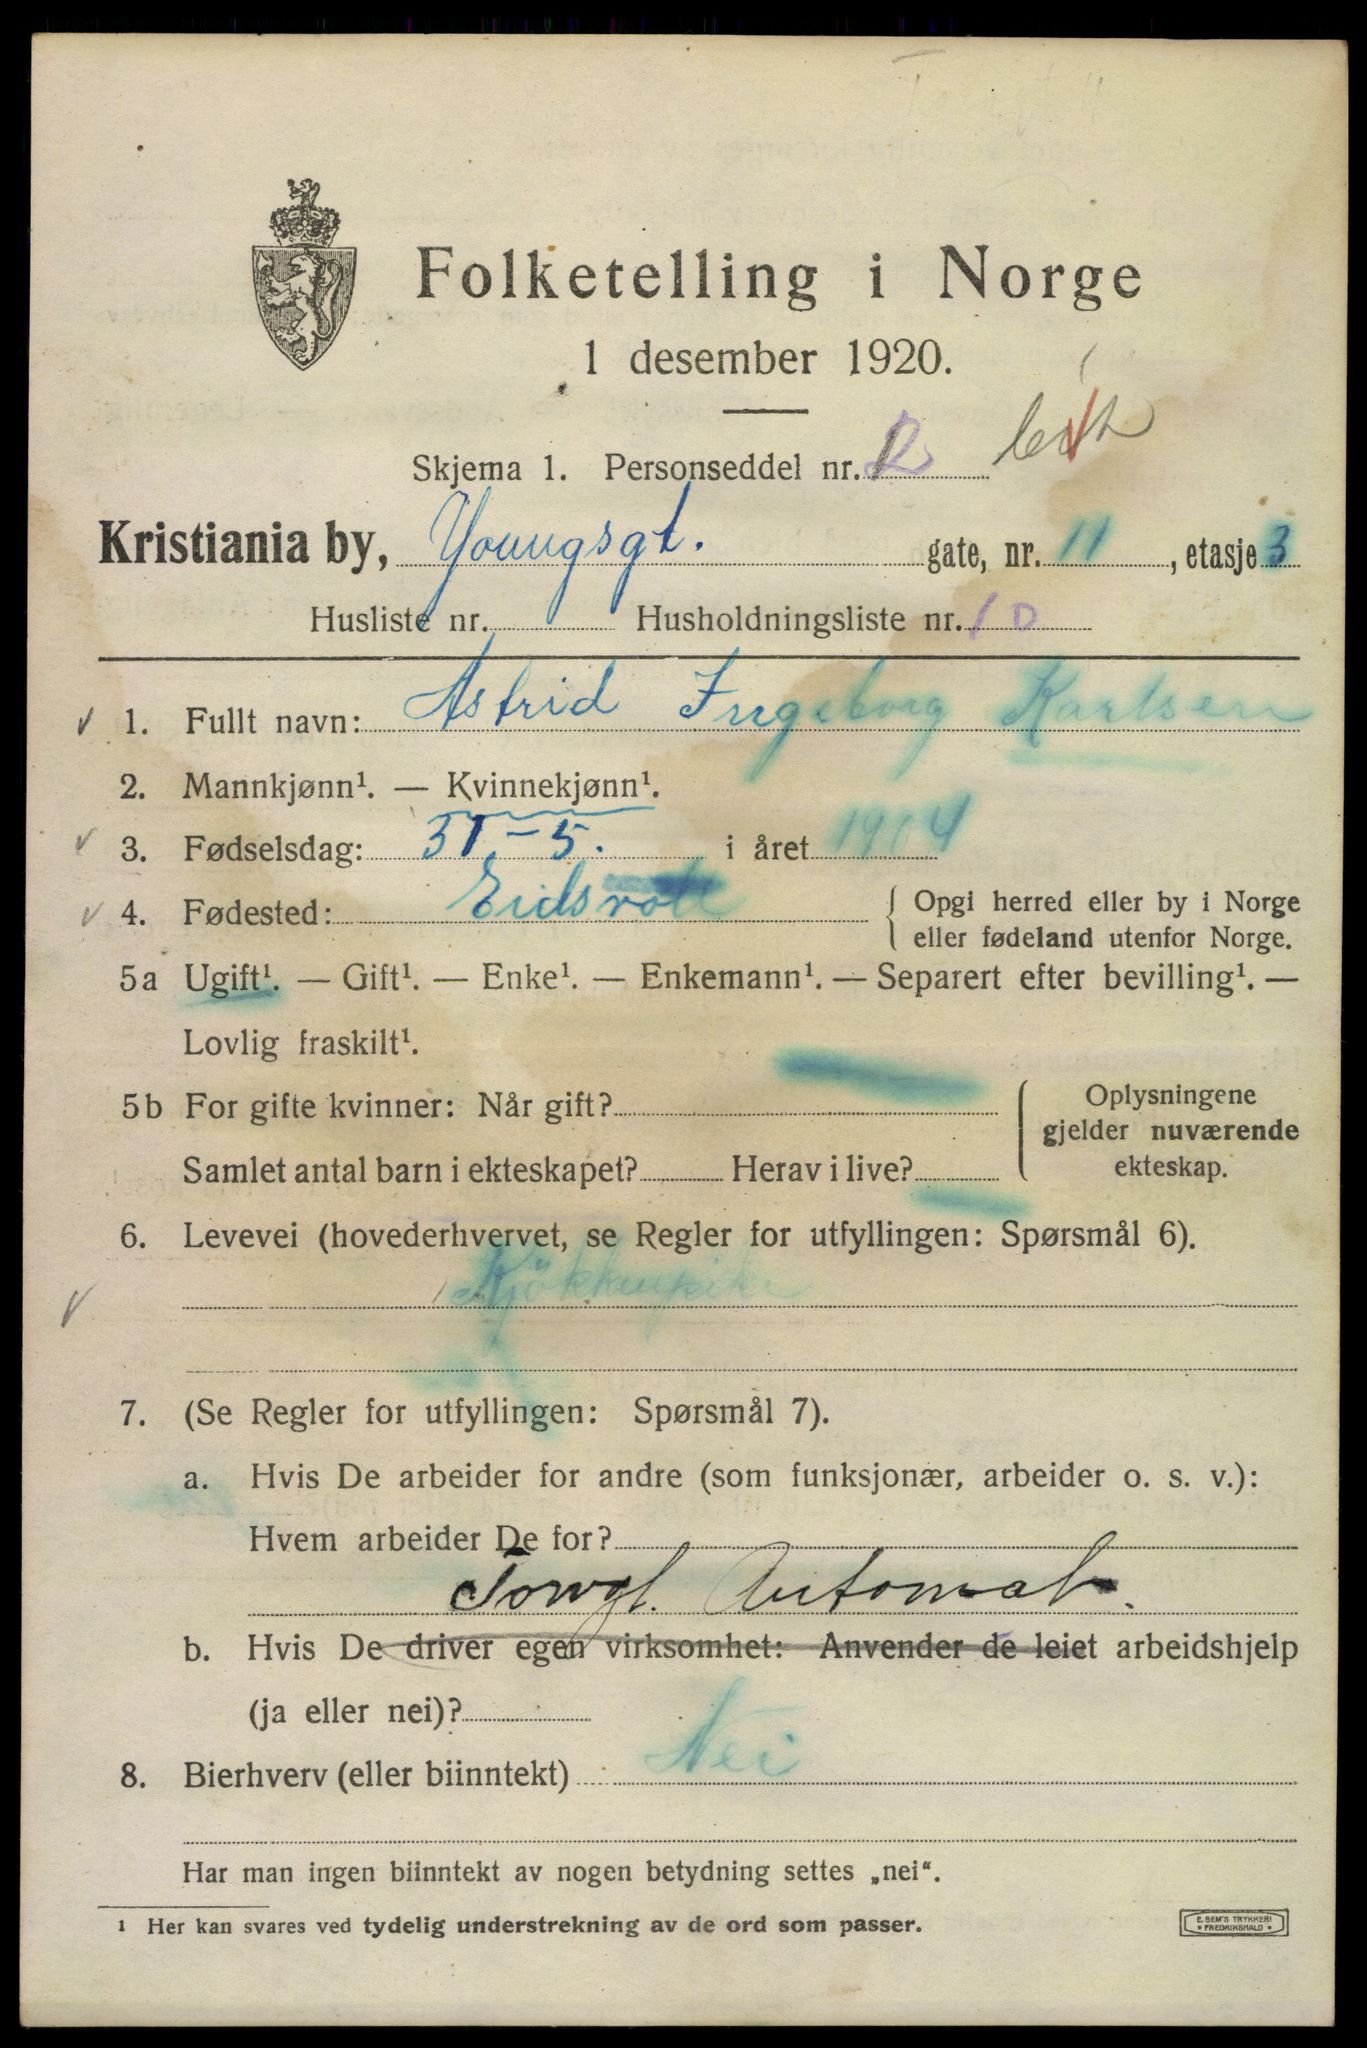 Folketelling i Norge
1 desember 1920.
Skjema 1. Personseddel nr. 2
Kristiania by, Youngsgt. gate, nr. 11, etasje 3
Husliste nr. Husholdningsliste nr. 10
1. Fullt navn: Astrid Ingeborg Karlsen
2. Mannkjønn¹. — Kvinnekjønn¹.
3. Fødselsdag: 31 - 5. i året 1904
4. Fødested: Eidsvoll { Opgi herred eller by i Norge
eller fødeland utenfor Norge.
5a Ugift¹. — Gift¹. — Enke¹. — Enkemann¹. — Separert efter bevilling¹. —
Lovlig fraskilt¹.
5b For gifte kvinner: Når gift? { Oplysningene
gjelder nuværende
Samlet antal barn i ekteskapet? Herav i live? ekteskap.
6. Levevei (hovederhvervet, se Regler for utfyllingen: Spørsmål 6).
Kjökkenpike
7. (Se Regler for utfyllingen: Spørsmål 7).
a. Hvis De arbeider for andre (som funksjonær, arbeider o. s. v.):
Hvem arbeider De for?
Torvgt. Automat.
b. Hvis De driver egen virksomhet: Anvender de leiet arbeidshjelp
(ja eller nei)?
8. Bierhverv (eller biinntekt) Nei
Har man ingen biinntekt av nogen betydning settes „nei“.
¹ Her kan svares ved tydelig understrekning av de ord som passer.
E. SEM'S TRYKKERI
• FREDRIKSHALD •